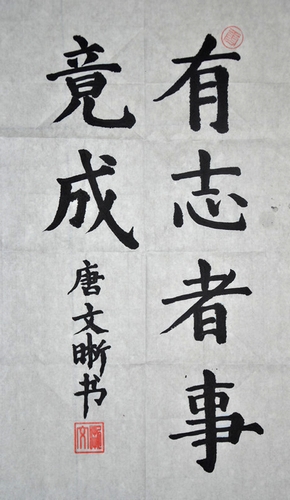 有志者事
竟成
唐文晰书